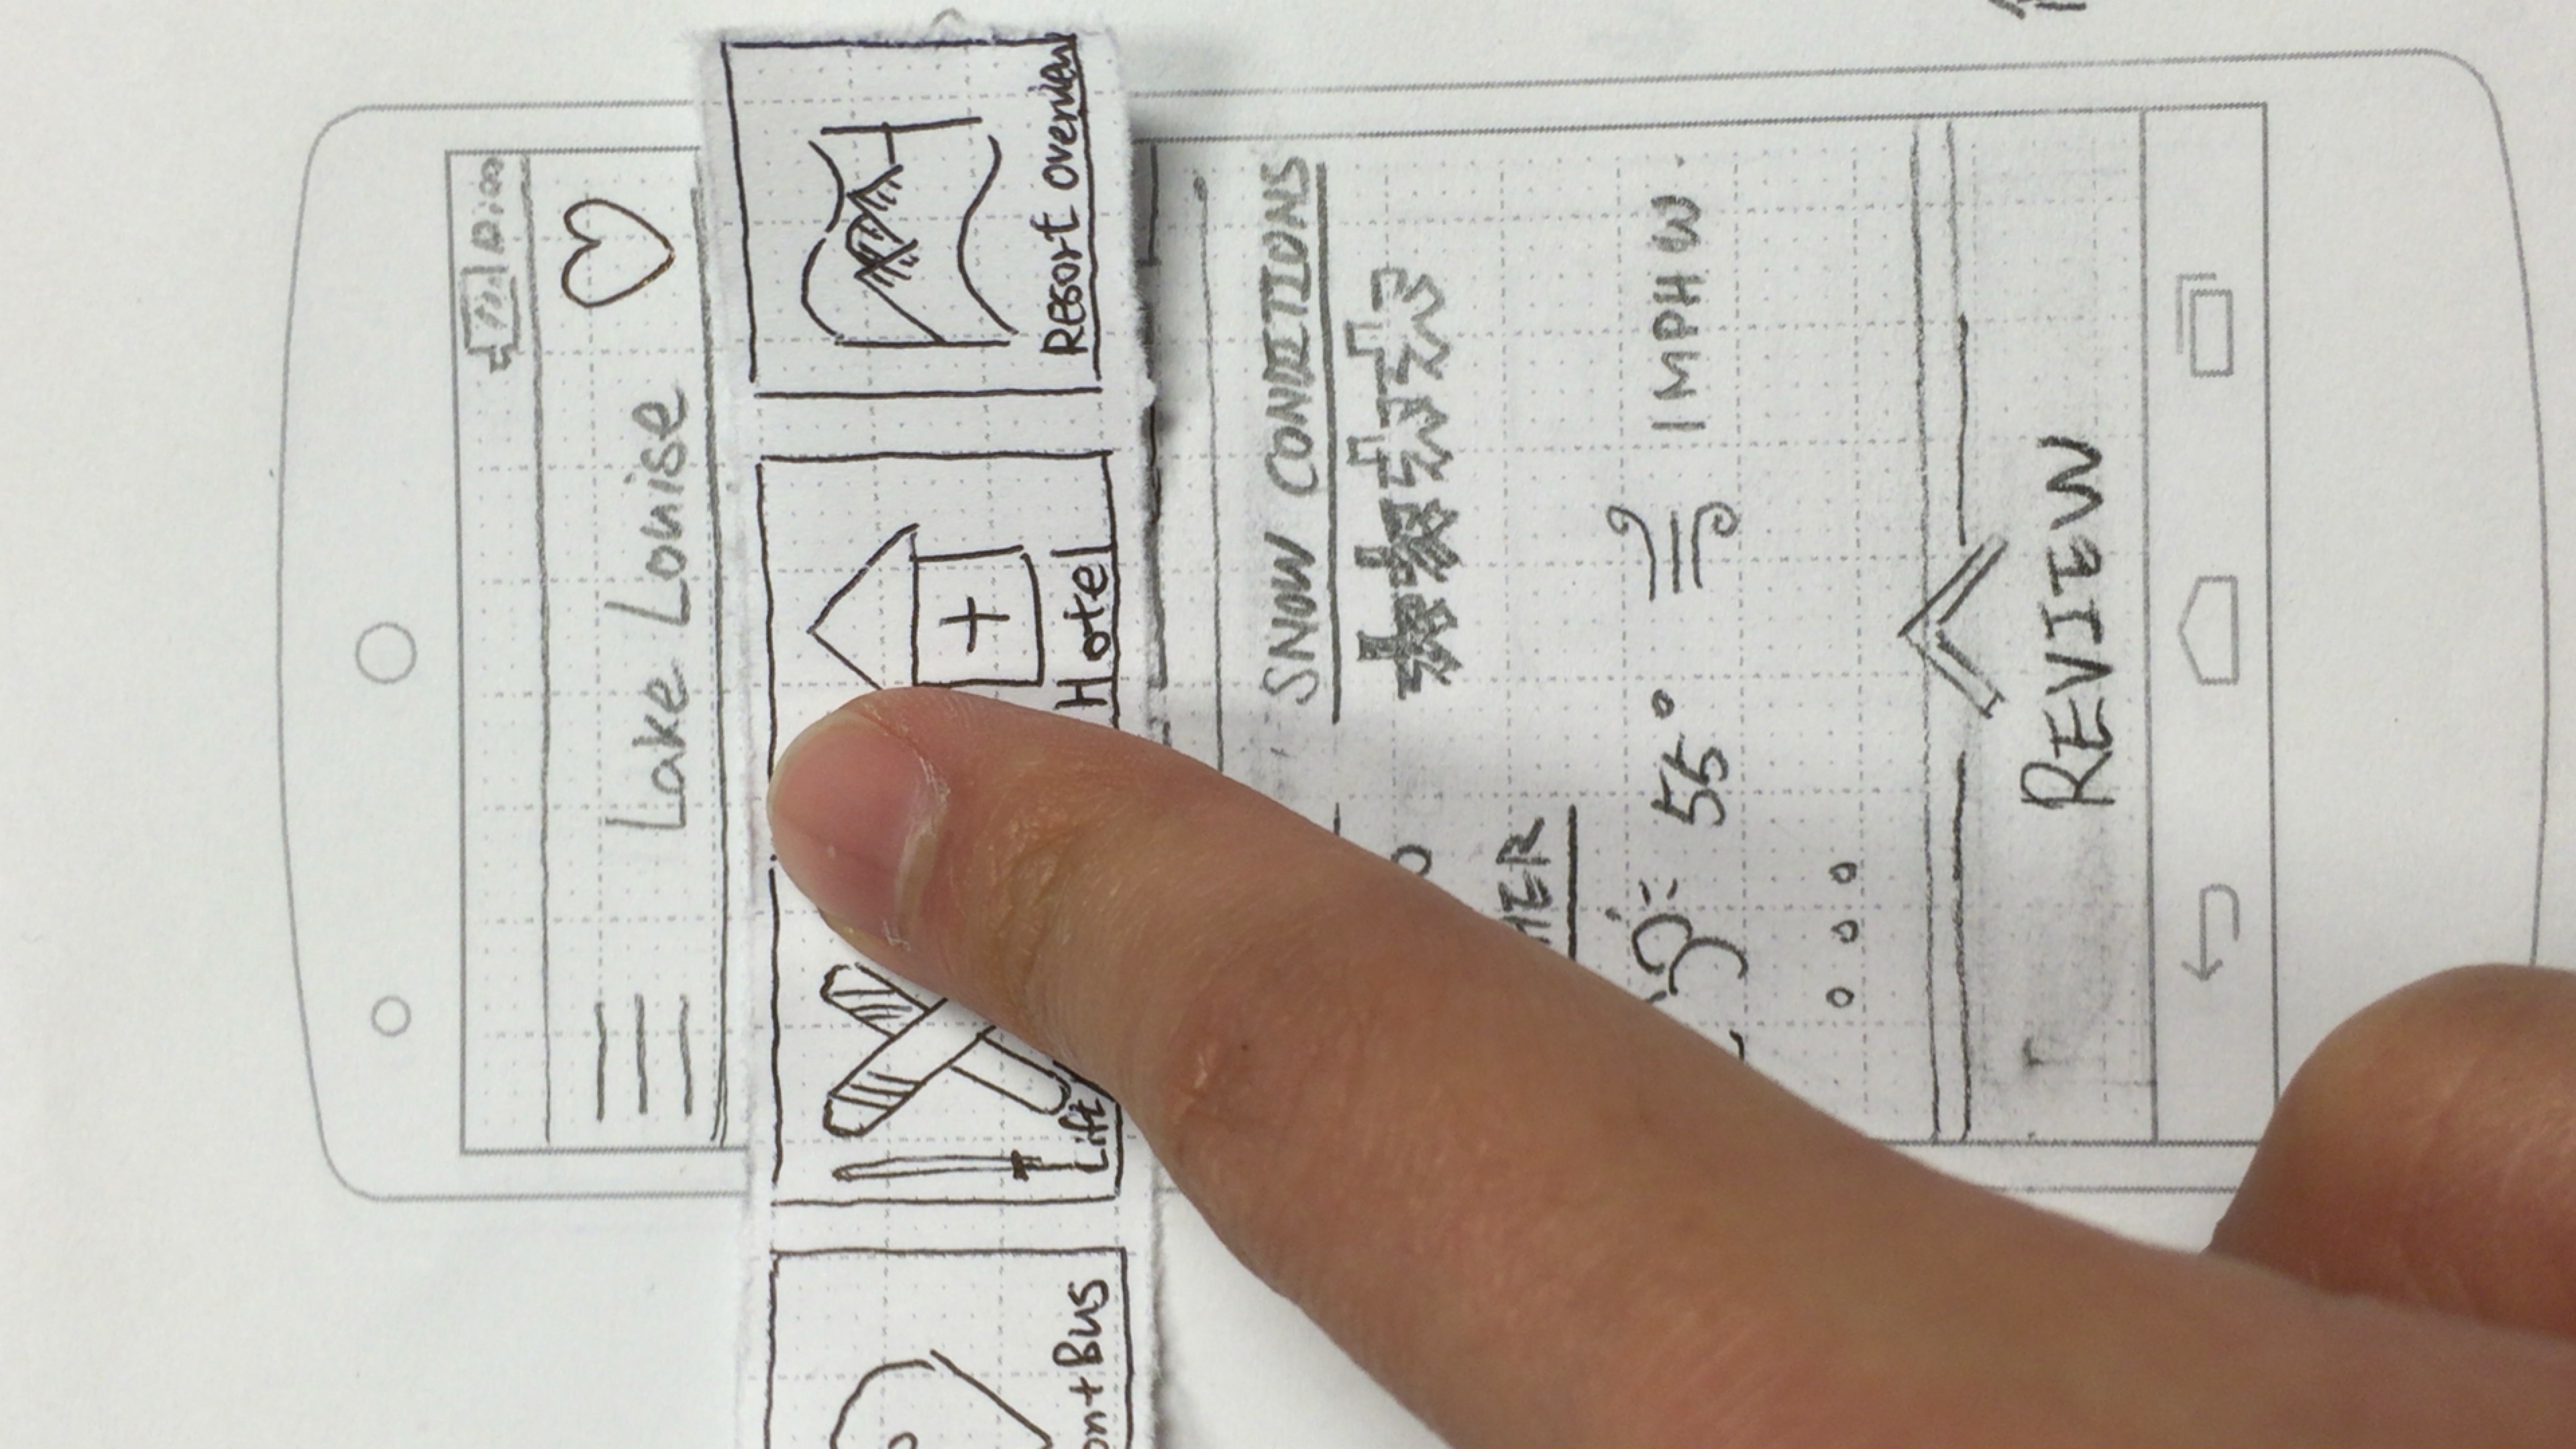 Lake Louise
Bus
Lift
Hotel
Resort Overview
SNOW CONDITIONS
HER
55°
1 MPH W
REVIEW